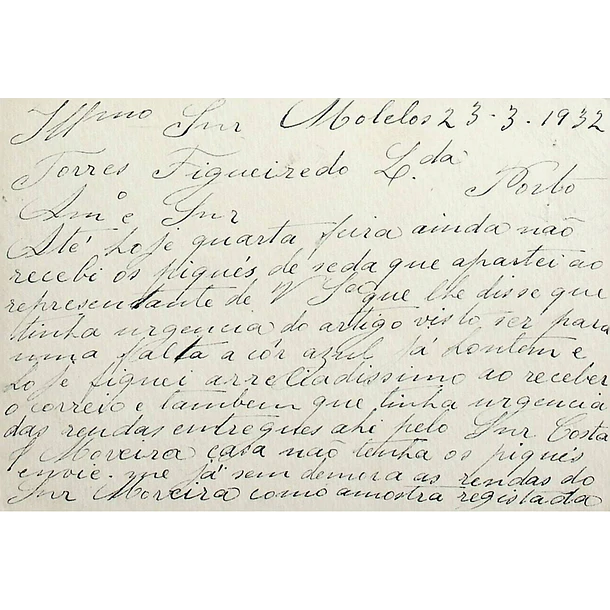 Illmo Snr Molelos 23-3-1932
Torres Figueiredo L.da Porto
Amº e Snr
Até hoje quarta feira ainda não
recebi os piqués de seda que apartei ao
representante de V Sas que lhe disse que
tinha urgencia do artigo visto ser para
uma falta a côr azul. Já hontem e
hoje fiquei arreliadissimo ao receber
o correio e tambem que tinha urgencia
das rendas entregues ahi pelo Snr Costa
Moreira casa não tenha os piqués
envie-me já sem demora as rendas do
Snr Moreira como amostra registada